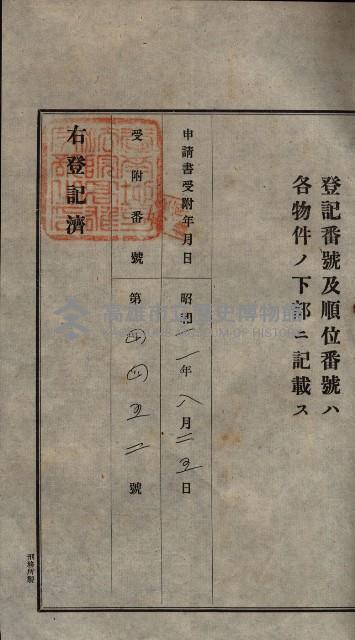 登記番號及順位番號ハ
各物件ノ下部ニ記載ス
申請書受附年月日
昭和十一年八月二五日
受附番號
第四四五二號
右登記濟
刑務所製
高雄市立歷史博物館
KAOHSIUNG MUSEUM OF HISTORY